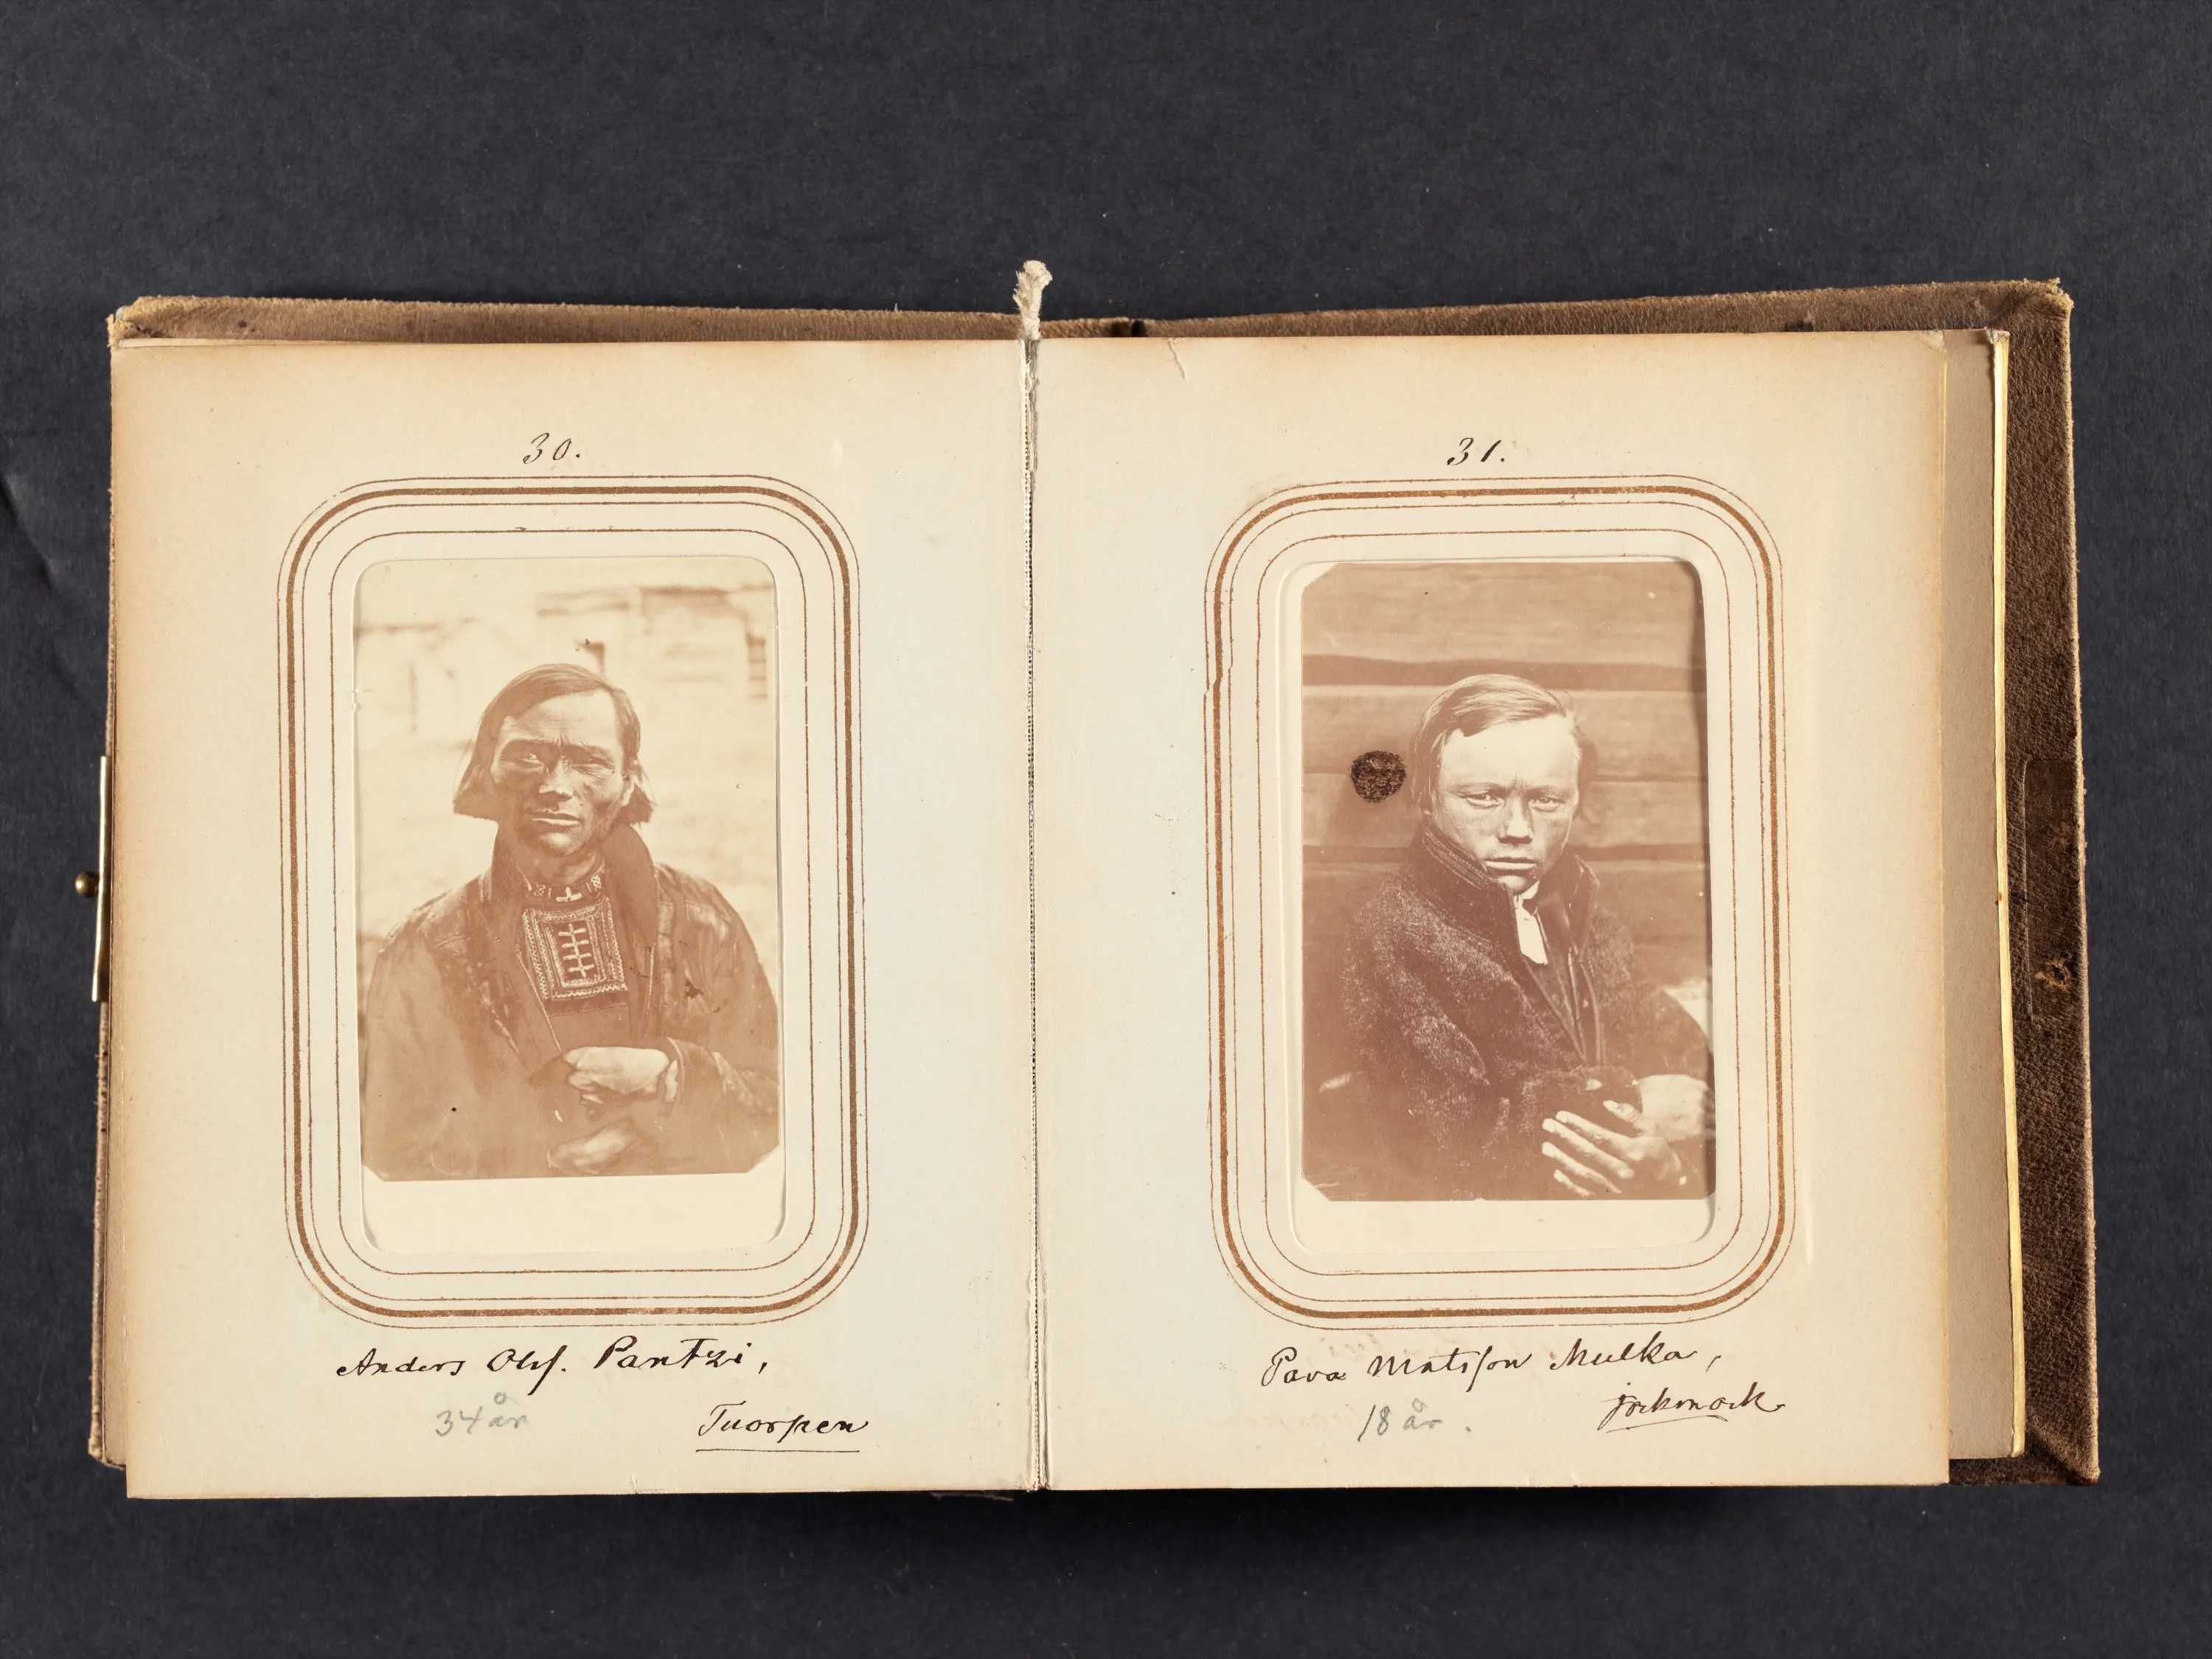 30.
Anders Olsf. Pantzi,
34 år
Tuorpen
31.
Pava Matsson Mulka,
18 år.
jockmock.